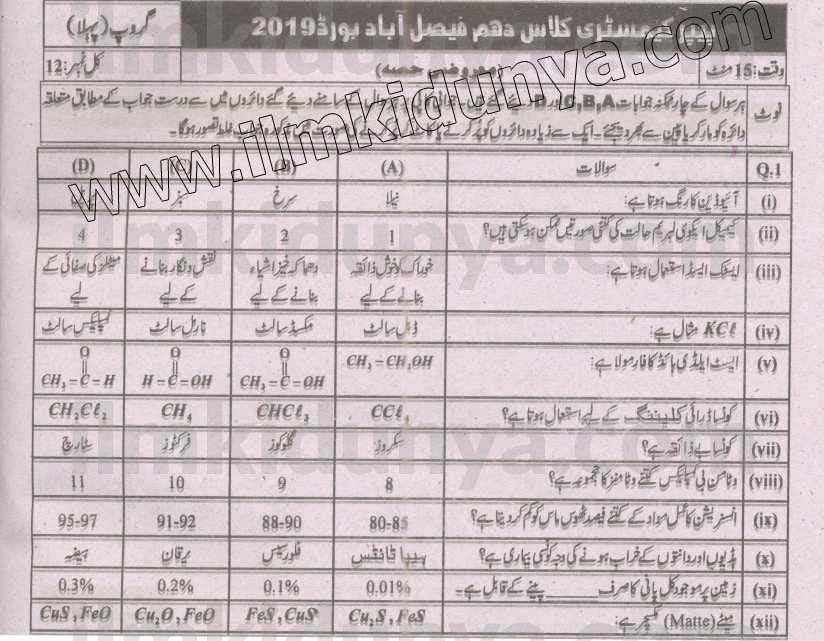 پیپر کیمسٹری کلاس دہم فیصل آباد بورڈ 2019 گروپ (پہلا)
وقت: 15 منٹ (معروضی حصہ) کل نمبر: 12
نوٹ ہر سوال کے چار ممکنہ جوابات C,B,A اور D دیئے گئے ہیں۔ سامنے دیئے گئے دائروں میں سے درست جواب کے مطابق متعلقہ
دائرہ کو مارکر یا پین سے بھر دیجئے۔ ایک سے زیادہ دائروں کو پُر کرنے یا کاٹ کر پُر کرنے کی صورت میں مذکورہ جواب غلط تصور ہوگا۔
Q.1 سوالات (A) (B) (C) (D)
(i) آئیوڈین کا رنگ ہوتا ہے: نیلا سرخ سبز
(ii) کیمیکل ایکوی لبریم حالت کی کتنی صورتیں ممکن ہوسکتی ہیں؟ 1 2 3 4
(iii) ایسٹک ایسڈ استعمال ہوتا ہے: خوراک کو خوش ذائقہ بنانے کے لیے دھماکہ خیز اشیاء بنانے کے لیے نقش و نگار بنانے کے لیے میٹلز کی صفائی کے لیے
(iv) KCl مثال ہے: ڈبل سالٹ مکسڈ سالٹ نارمل سالٹ کمپلیکس سالٹ
(v) ایسٹ ایلڈی ہائڈ کا فارمولا ہے: CH₃–CH₂OH CH₃–C(=O)–OH H–C(=O)–OH CH₃–C(=O)–H
(vi) کونسا ڈرائی کلیننگ کے لیے استعمال ہوتا ہے؟ CCl₄ CHCl₃ CH₄ CH₂Cl₂
(vii) کونسا بے ذائقہ ہے؟ سکروز گلوکوز فرکٹوز سٹارچ
(viii) وٹامن بی کمپلیکس کتنے وٹامنز کا مجموعہ ہے؟ 8 9 10 11
(ix) انسنریشن کا عمل مواد کے کتنے فیصد ٹھوس ماس کو کم کردیتا ہے؟ 80-85 88-90 91-92 95-97
(x) ہڈیوں اور دانتوں کے خراب ہونے کی وجہ کونسی بیماری ہے؟ ہیپاٹائٹس فلوروسس یرقان ہیضہ
(xi) زمین پر موجود کل پانی کا صرف ______ پینے کے قابل ہے۔ 0.01% 0.1% 0.2% 0.3%
(xii) میٹے (Matte) مکسچر ہے: Cu₂S , FeS FeS , CuS Cu₂O , FeO CuS , FeO
www.ilmkidunya.com
ilmkidunya.com